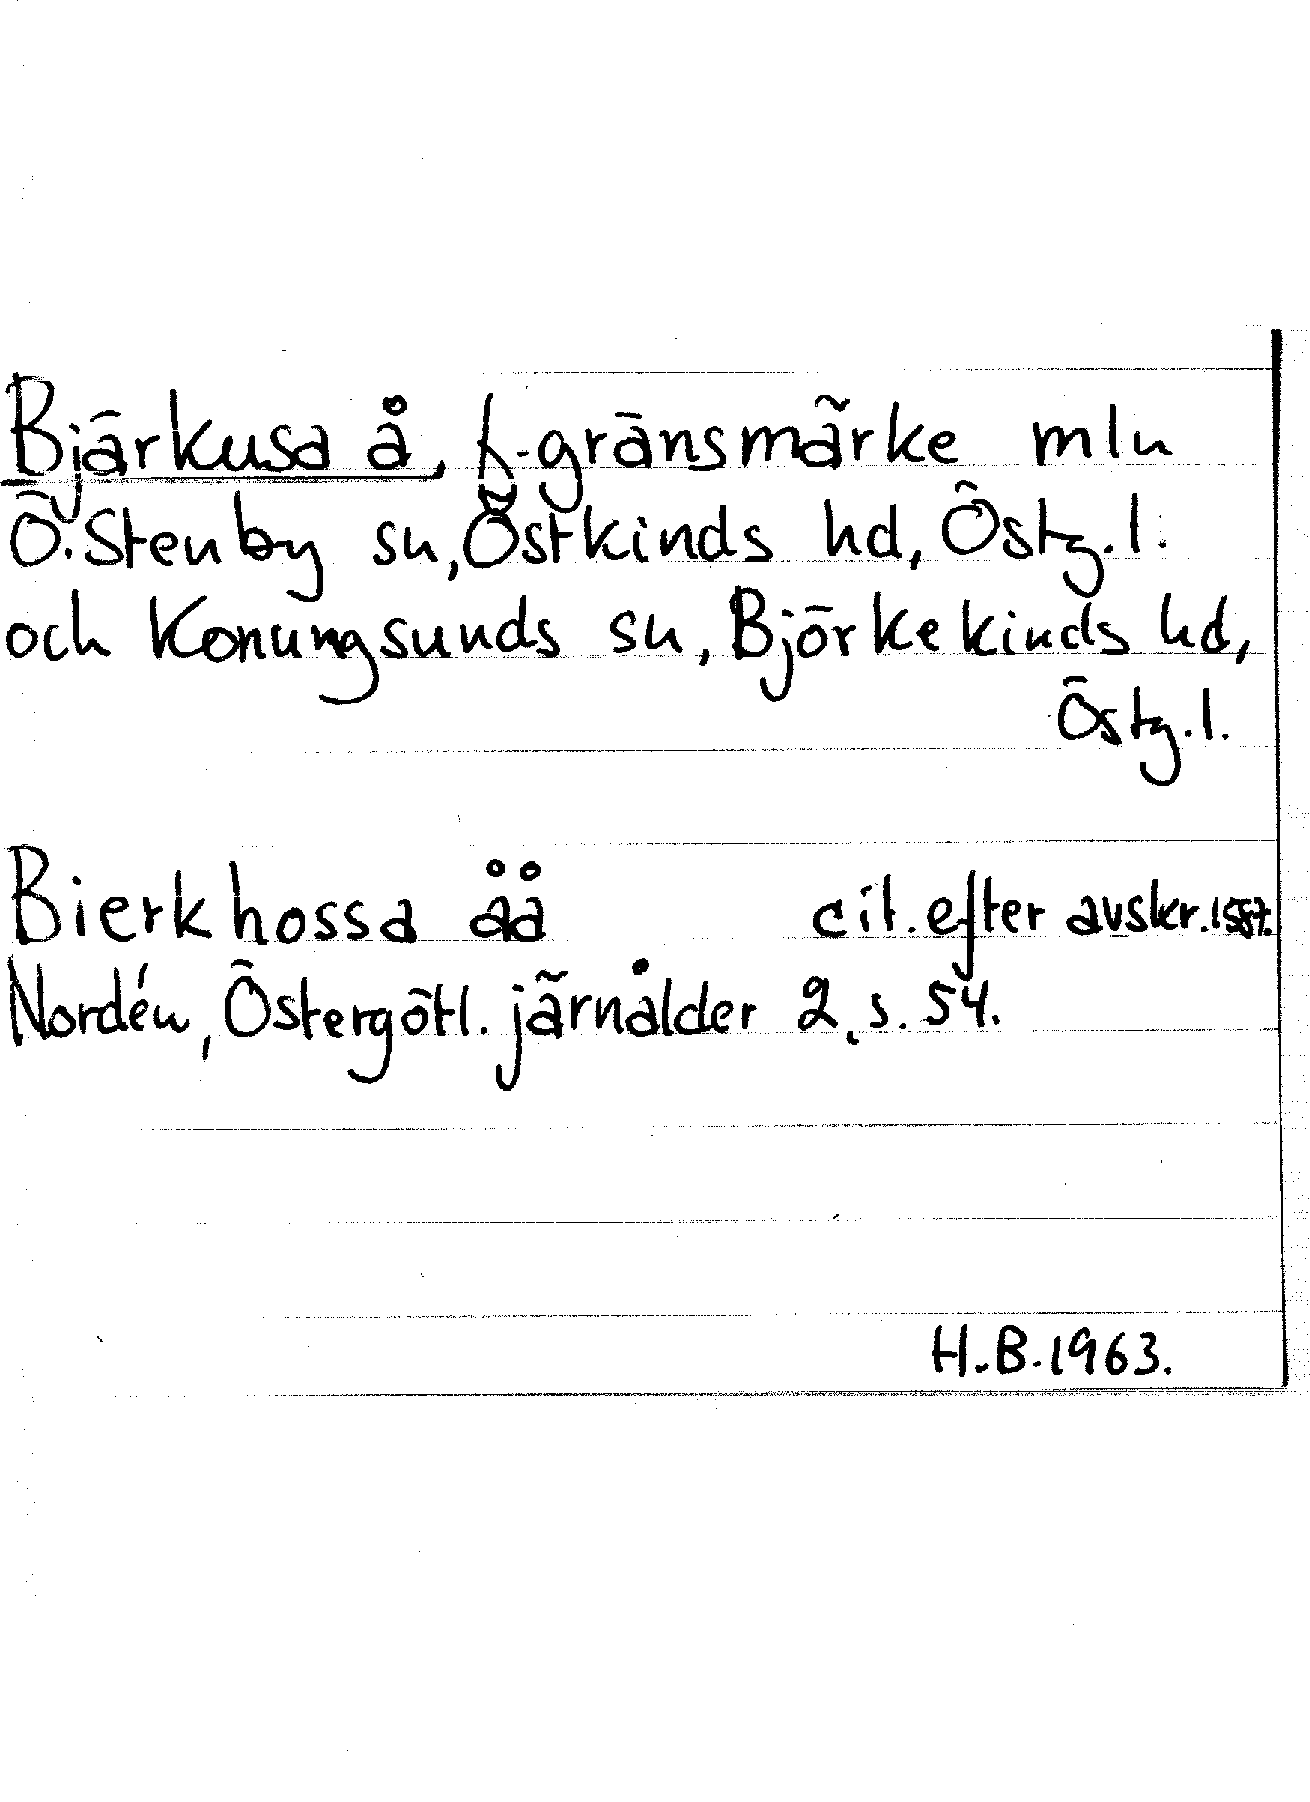 Bjärkusa å, f. gränsmärke mln
Ö. Stenby sn, Östkinds hd, Östg. l.
och Konungsunds sn, Björkekinds hd,
Östg. l.
Bierkhossa åå cit. efter avskr. 1557.
Nordén, Östergötl. järnålder 2, s. 54.
H. B. 1963.